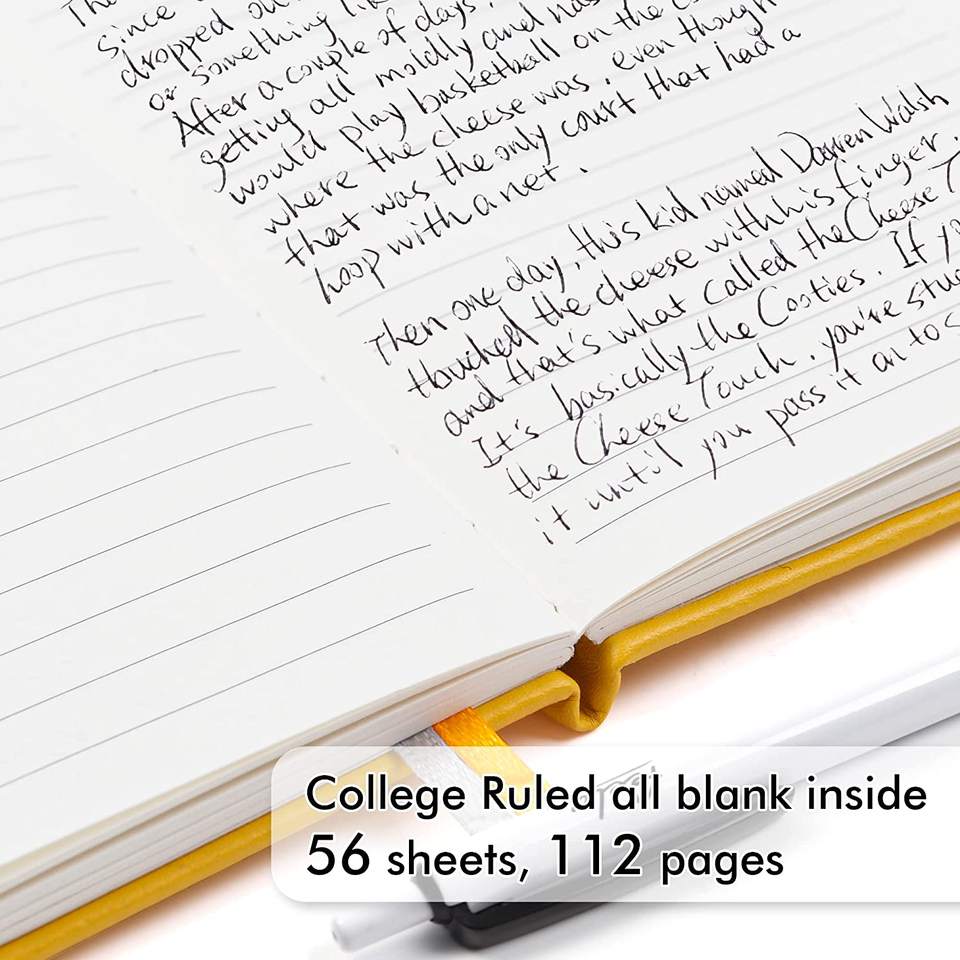 Tha
since
dropped ou
or something lik
After a couple of days,
getting all moldly and nas
would play basketball on the c
where the cheese was, even though
that was the only court that had a
hoop with a net.
Then one day, this kid named Darren Walsh
touched the cheese with his finger.
and that's what called the Cheese T
It's basically the Cooties. If yo
the Cheese Touch, you're stuc
it until you pass it on to s
College Ruled all blank inside
56 sheets, 112 pages